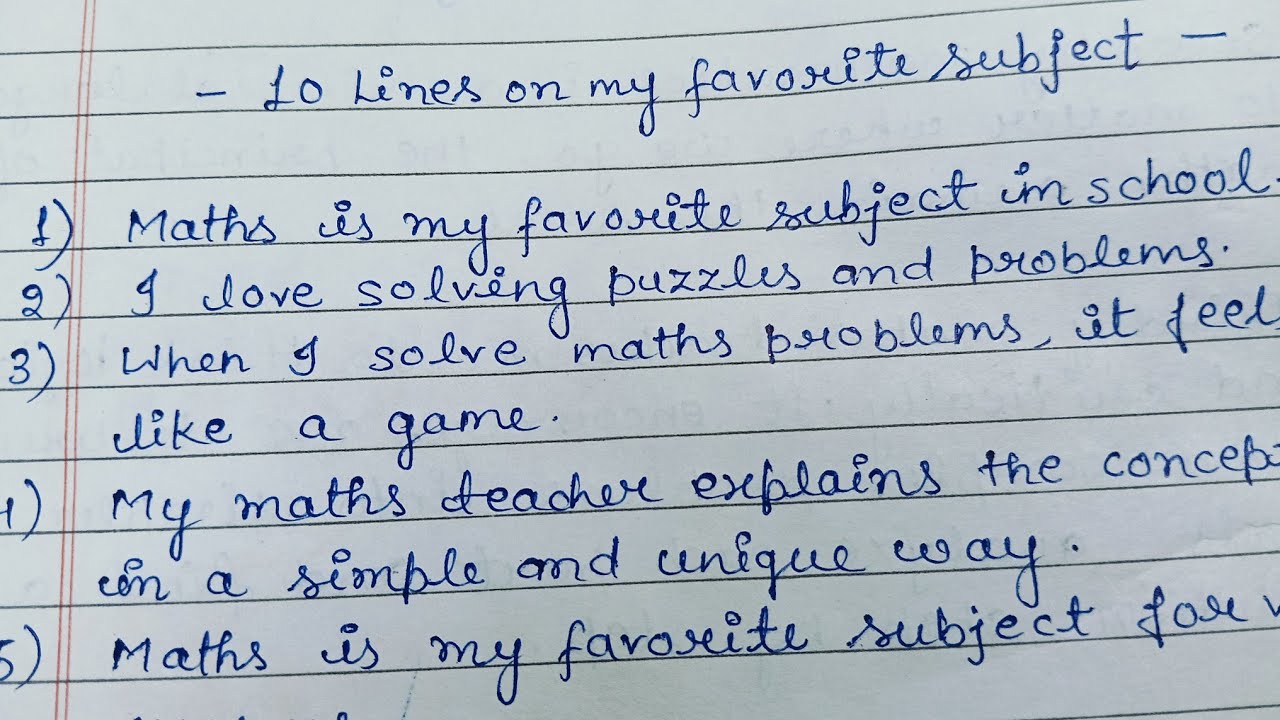 - 10 Lines on my favorite subject -
1) Maths is my favorite subject in school.
2) I love solving puzzles and problems.
3) When I solve maths problems, it feel
like a game.
4) My maths teacher explains the concept
in a simple and unique way.
5) Maths is my favorite subject for